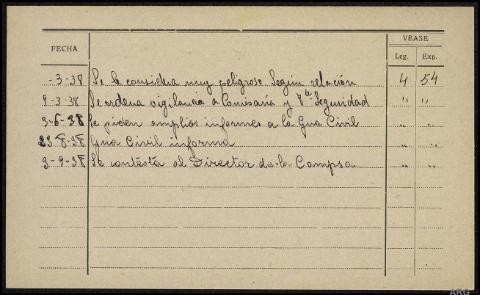 VEASE
FECHA
Leg. Exp.
-3-38 Se le considera muy peligroso según relación 4 54
9-3-38 Se ordena vigilancia a Comisaría y Seguridad " "
3-6-38 Se piden amplios informes a la Gua Civil " "
23-8-38 Gua Civil informa " "
3-9-38 Se contesta al Director de la Campsa " "
ARG